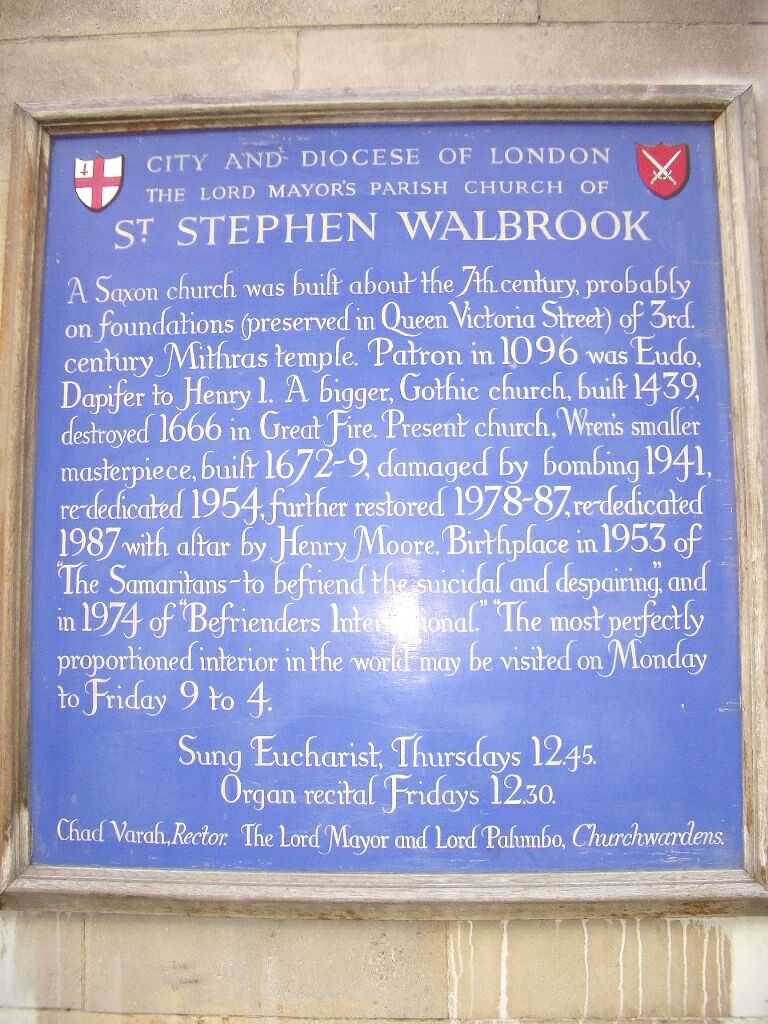 CITY AND DIOCESE OF LONDON
THE LORD MAYOR'S PARISH CHURCH OF
ST STEPHEN WALBROOK
A Saxon church was built about the 7th.century, probably
on foundations (preserved in Queen Victoria Street) of 3rd.
century Mithras temple. Patron in 1096 was Eudo,
Dapifer to Henry I. A bigger, Gothic church, built 1439,
destroyed 1666 in Great Fire. Present church, Wren's smaller
masterpiece, built 1672-9, damaged by bombing 1941,
re-dedicated 1954, further restored 1978-87, re-dedicated
1987 with altar by Henry Moore. Birthplace in 1953 of
"The Samaritans-to befriend the suicidal and despairing", and
in 1974 of "Befrienders International." "The most perfectly
proportioned interior in the world may be visited on Monday
to Friday 9 to 4.
Sung Eucharist, Thursdays 12.45.
Organ recital Fridays 12.30.
Chad Varah, Rector. The Lord Mayor and Lord Palumbo, Churchwardens.